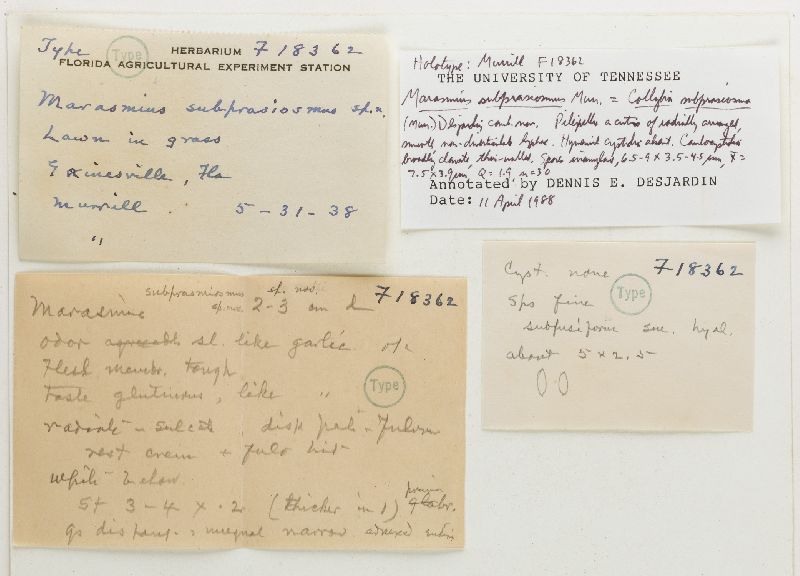 Type Type HERBARIUM F 18362
FLORIDA AGRICULTURAL EXPERIMENT STATION
Marasmius subprasiosmus sp. n.
Lawn in grass
Gainesville, Fla
Murrill 5-31-38
"
Holotype: Murrill F18362
THE UNIVERSITY OF TENNESSEE
Marasmius subprasiosmus Murr. = Collybia subprasiosma
(Murr.) Desjardin comb. nov. Pileipellis a cutis of radially arranged,
smooth, non-diverticulate hyphae. Hymenial cystidia absent. Caulocystidia
broadly clavate, thin-walled. Spores 6.5-9 x 3.5-4.5 µm, x̄ =
7.5 x 3.9 µm, Q = 1.9, n = 30
Annotated by DENNIS E. DESJARDIN
Date: 11 April 1988
Cyst. none F18362
Type
Sps fine
subfusiform smc. hyal.
about 5 x 2.5
subprasiosmus sp. nov.
Marasmius sp. nov. 2-3 cm d F18362
odor agreeable sl. like garlic o/c
Flesh memb. tough
Type
Taste glutinous, like "
radiate-sulcate disk
rest cream + fulv
white below
St 3-4 x .2 (thicker in 1) glabr.
unequal narrow adnexed